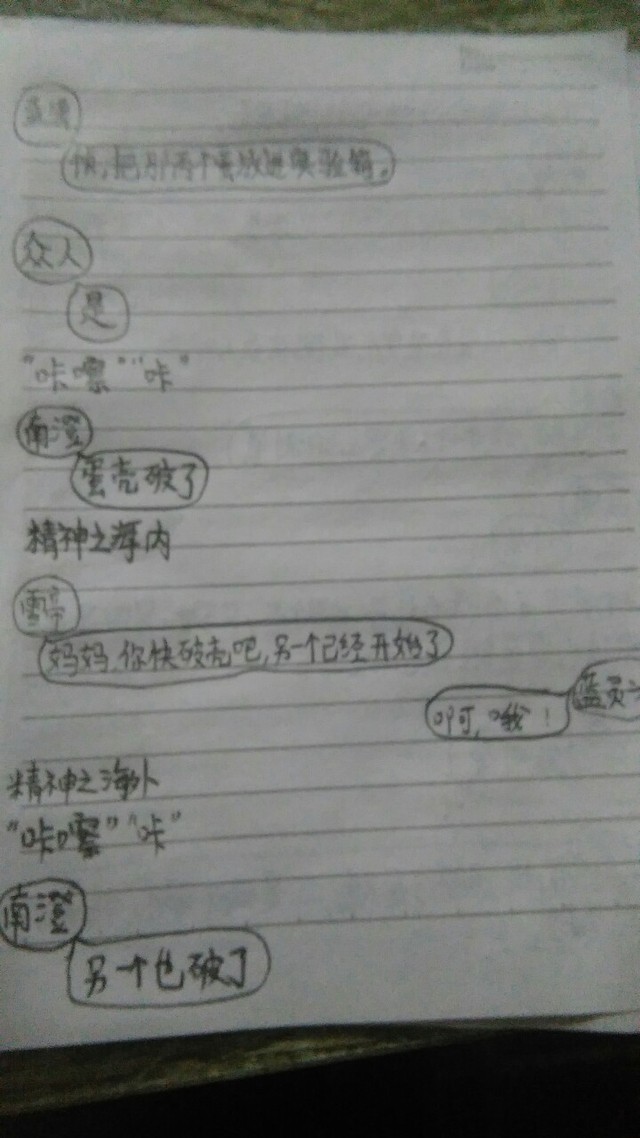 快,把那两个蛋放进实验箱。
众人
是
"咔嚓""咔"
南澄
蛋壳破了
精神之海内
雪帝
妈妈,你快破壳吧,另一个已经开始了
啊,哦!
蓝灵
精神之海外
"咔嚓""咔"
南澄
另一个也破了